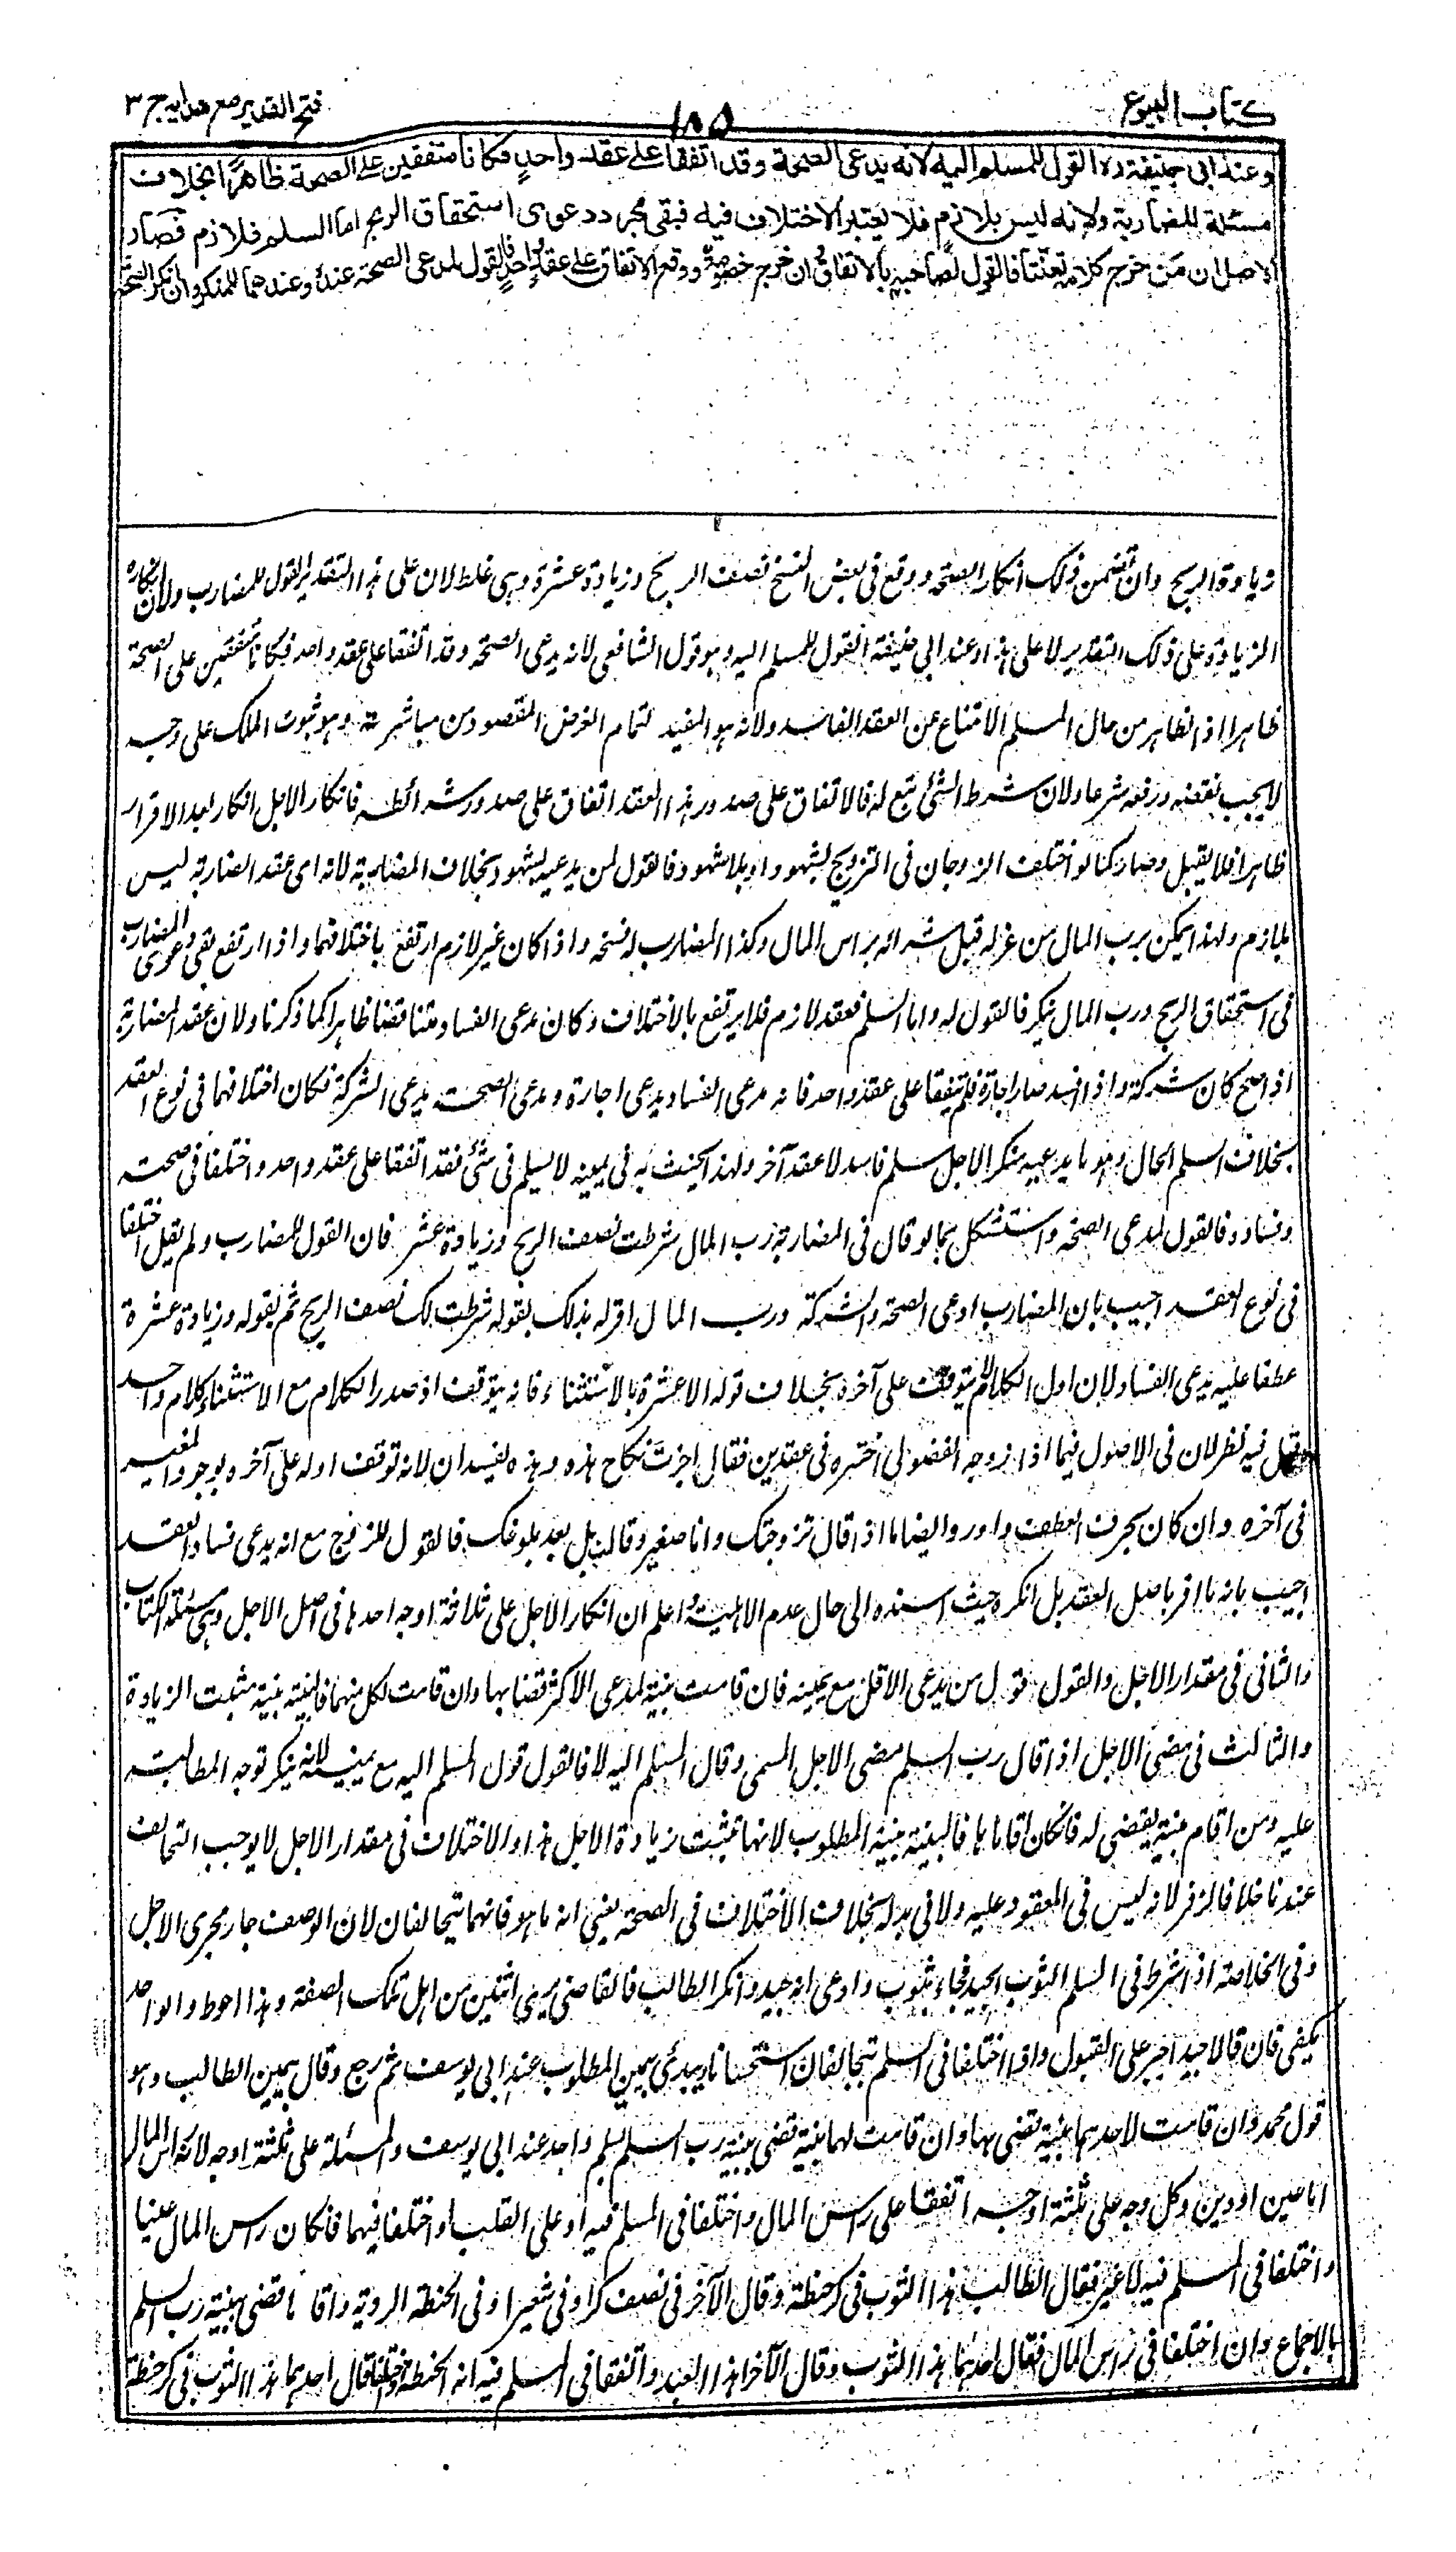 كتاب البيوع
١٨٥
فتح القدير مع هدايه ج ٣
وعند ابى حنيفة ره القول للمسلم اليه لانه يدعى الصحة وقد اتفقا على عقد واحد فكانا متفقين على الصحة ظاهرا بخلاف
مسئلة المضاربة ولانه ليس بلازم فلا يعتبر الاختلاف فيه فبقى مجرد دعوى استحقاق الربح اما السلم فلازم فصار
الاصل ان من خرج كلامه تعنتا فالقول لصاحبه بالاتفاق وان خرج خصومة ووقع الاتفاق على عقد واحد فالقول لمدعى الصحة عنده وعندهما للمنكر وان انكر الصحة
زيادة الربح وان تضمن ذلك انكار الصحة ووقع فى بعض النسخ نصف الربح وزيادة عشرة وهى غلط لان على هذا التقدير القول للمضارب ولان انكاره
الزيادة على ذلك التقدير لا على هذا وعند ابى حنيفة القول للمسلم اليه وهو قول الشافعى لانه يدعى الصحة وقد اتفقا على عقد واحد فكانا متفقين على الصحة
ظاهرا اذ الظاهر من حال المسلم الامتناع عن العقد الفاسد ولانه هو المفيد لتمام الغرض المقصود من مباشرته وهو ثبوت الملك على وجه
لا يجب نقضه ورفعه شرعا ولان شرط الشئ تبع له فالاتفاق على صدور هذا العقد اتفاق على صدور شرائطه فانكار الاجل انكار بعد الاقرار
ظاهرا فلا يقبل وصار كما لو اختلف الزوجان فى التزويج بشهود او بلا شهود فالقول لمن يدعيه بشهود بخلاف المضاربة لانه اى عقد المضاربة ليس
بلازم ولهذا يمكن رب المال من عزله قبل شرائه براس المال وكذا المضارب له فسخه واذا كان غير لازم ارتفع باختلافهما واذا ارتفع بقى دعوى المضارب
فى استحقاق الربح ورب المال ينكر فالقول له واما السلم فعقد لازم فلا يرتفع بالاختلاف وكان مدعى الفساد متناقضا ظاهرا كما ذكرنا ولان عقد المضاربة
اذا صح كان شركة واذا فسد صار اجارة فلم يتفقا على عقد واحد فانه مدعى الفساد يدعى اجارة ومدعى الصحة يدعى الشركة فكان اختلافهما فى نوع العقد
بخلاف السلم الحال وهو ما يدعيه منكر الاجل سلم فاسد لا عقد آخر ولهذا يحنث به فى يمينه لا يسلم فى شئ فقد اتفقا على عقد واحد واختلفا فى صحته
وفساده فالقول لمدعى الصحة واستشكل بما لو قال فى المضاربة رب المال شرطت نصف الربح وزيادة عشر فان القول للمضارب ولم يقل اختلفا
فى نوع العقد اجيب بان المضارب ادعى الصحة والشركة ورب المال اقر له بذلك بقوله شرطت لك نصف الربح ثم بقوله وزيادة عشرة
عطفا عليه يدعى الفساد لان اول الكلام لا يتوقف على آخره بخلاف قوله الا عشرة بالاستثناء فانه يتوقف اذ صدر الكلام مع الاستثناء كلام واحد
وقيل فيه نظر لان فى الاصول فيما اذا زوجه الفضولى اختين فى عقدين فقال اجزت نكاح هذه وهذه يفسدان لانه توقف اوله على آخره لوجود المغير
فى آخره وان كان بحرف العطف واورد ايضا ما اذا قال تزوجتك وانا صغير وقالت بل بعد بلوغك فالقول للزوج مع انه يدعى فساد العقد
اجيب بانه ما اقر باصل العقد بل انكره حيث اسنده الى حال عدم الاهلية واعلم ان انكار الاجل على ثلاثة اوجه احدها فى اصل الاجل وهى مسئلة الكتاب
والثانى فى مقدار الاجل والقول قول من يدعى الاقل مع يمينه فان قامت بينة لمدعى الاكثر قضا بها وان قامت لكل منهما فالبينة بينة مثبت الزيادة
والثالث فى مضى الاجل اذا قال رب السلم مضى الاجل المسمى وقال المسلم اليه لا فالقول قول المسلم اليه مع يمينه لانه ينكر توجه المطالبة
عليه ومن اقام بينة يقضى له فانكان اقاماها فالبينة بينة المطلوب لانها تثبت زيادة الاجل هذا والاختلاف فى مقدار الاجل لا يوجب التحالف
عندنا خلافا لزفر لانه ليس فى المعقود عليه ولا فى بدله بخلاف الاختلاف فى الصحة يعنى انه ما هو فانهما يتحالفان لان الوصف جار مجرى الاجل
وفى الخلاصة اذا شرط فى السلم الثوب الجيد فجاء بثوب وادعى انه جيد وانكر الطالب فالقاضى يرى اثنين من اهل تلك الصنعة وهذا احوط والواحد
يكفى فان قالا جيد اجبر على القبول واذا اختلفا فى السلم تيحالفان استحسانا ويبدئ بيمين المطلوب عند ابى يوسف ثم رجع وقال بيمين الطالب وهو
قول محمد وان قامت لاحدهما بينة يقضى بها وان قامت لهما بينة يقضى ببينة رب السلم بسلم واحد عند ابى يوسف والمسئلة على ثلثة اوجه لان راس المال
اما عين او دين وكل وجه على ثلثة اوجه اتفقا على راس المال واختلفا فى المسلم فيه او على القلب او اختلفا فيهما فانكان راس المال عينا
واختلفا فى المسلم فيه لا غير فقال الطالب هذا الثوب فى كر حنطة وقال الآخر فى نصف كر او فى شعير او فى الحنطة الردية واقاما قضى ببينة رب السلم
بالاجماع وان اختلفا فى راس المال فقال احدهما هذا الثوب وقال الآخر هذا العبد واتفقا فى المسلم فيه انه الحنطة او اختلفا فقال احدهما هذا الثوب فى كر حنطة